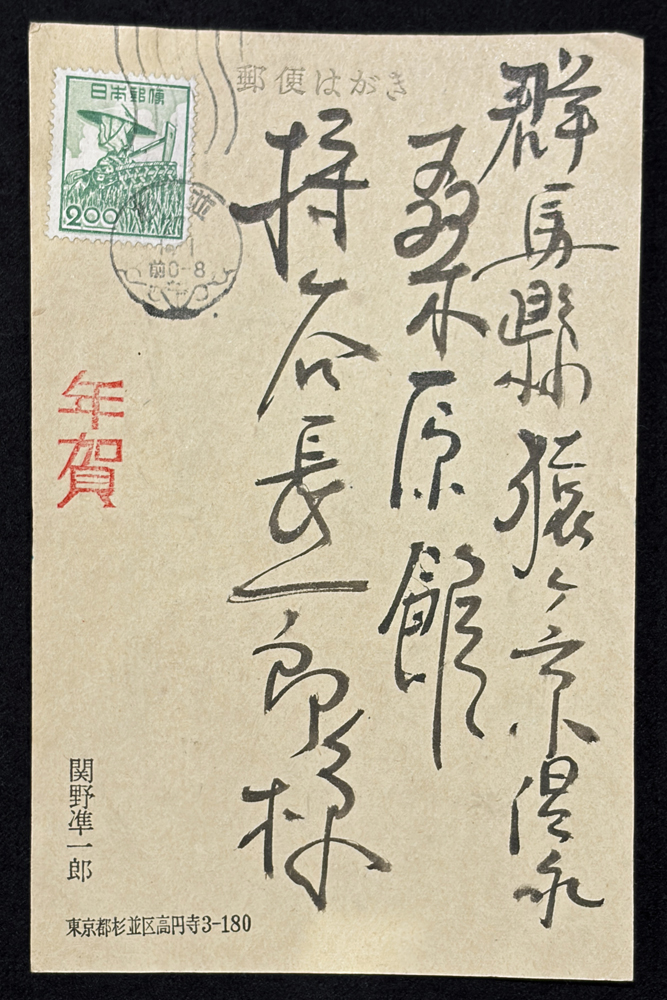 郵便はがき
日本郵便
200
並
前0-8
群馬縣猿ヶ京温泉
桑原館
持谷長一郎様
年賀
関野凖一郎
東京都杉並区高円寺3-180